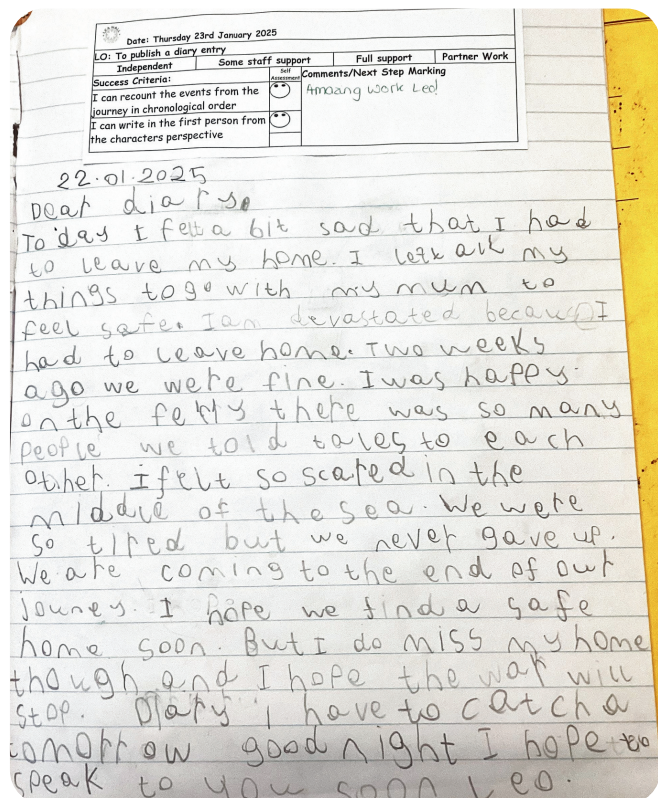 Date: Thursday 23rd January 2025
LO: To publish a diary entry
Independent Some staff support Full support Partner Work
Success Criteria: Self Assessment Comments/Next Step Marking
I can recount the events from the journey in chronological order
Amazing work Leo!
I can write in the first person from the characters perspective
22.01.2025
Dear diary.
To day I felt a bit sad that I had
to leave my home. I left all my
things to go with my mum to
feel safe. I am devastated because I
had to leave home. Two weeks
ago we were fine. I was happy.
on the ferry there was so many
people we told tales to each
other. I felt so scared in the
middle of the sea. We were
so tired but we never gave up.
We are coming to the end of our
jouney. I hope we find a safe
home soon. But I do miss my home
though and I hope the war will
stop. Diary I have to catch a
tomorrow good night I hope to
speak to you soon Leo.